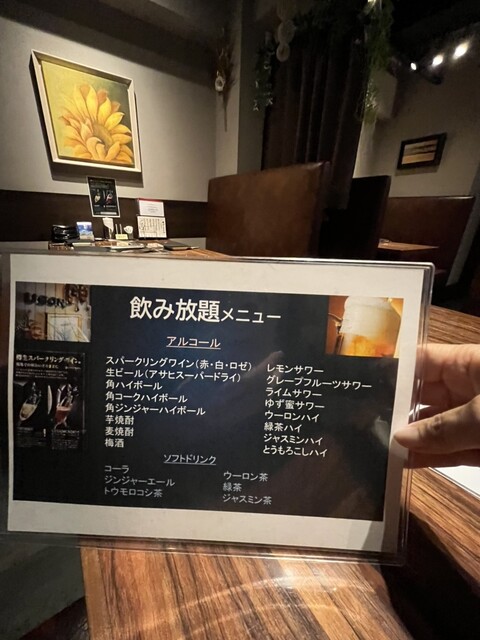 飲み放題メニュー
アルコール
スパークリングワイン(赤・白・ロゼ)
生ビール(アサヒスーパードライ)
角ハイボール
角コークハイボール
角ジンジャーハイボール
芋焼酎
麦焼酎
梅酒
レモンサワー
グレープフルーツサワー
ライムサワー
ゆず蜜サワー
ウーロンハイ
緑茶ハイ
ジャスミンハイ
とうもろこしハイ
ソフトドリンク
コーラ
ジンジャーエール
トウモロコシ茶
ウーロン茶
緑茶
ジャスミン茶
樽生スパークリングワイン。